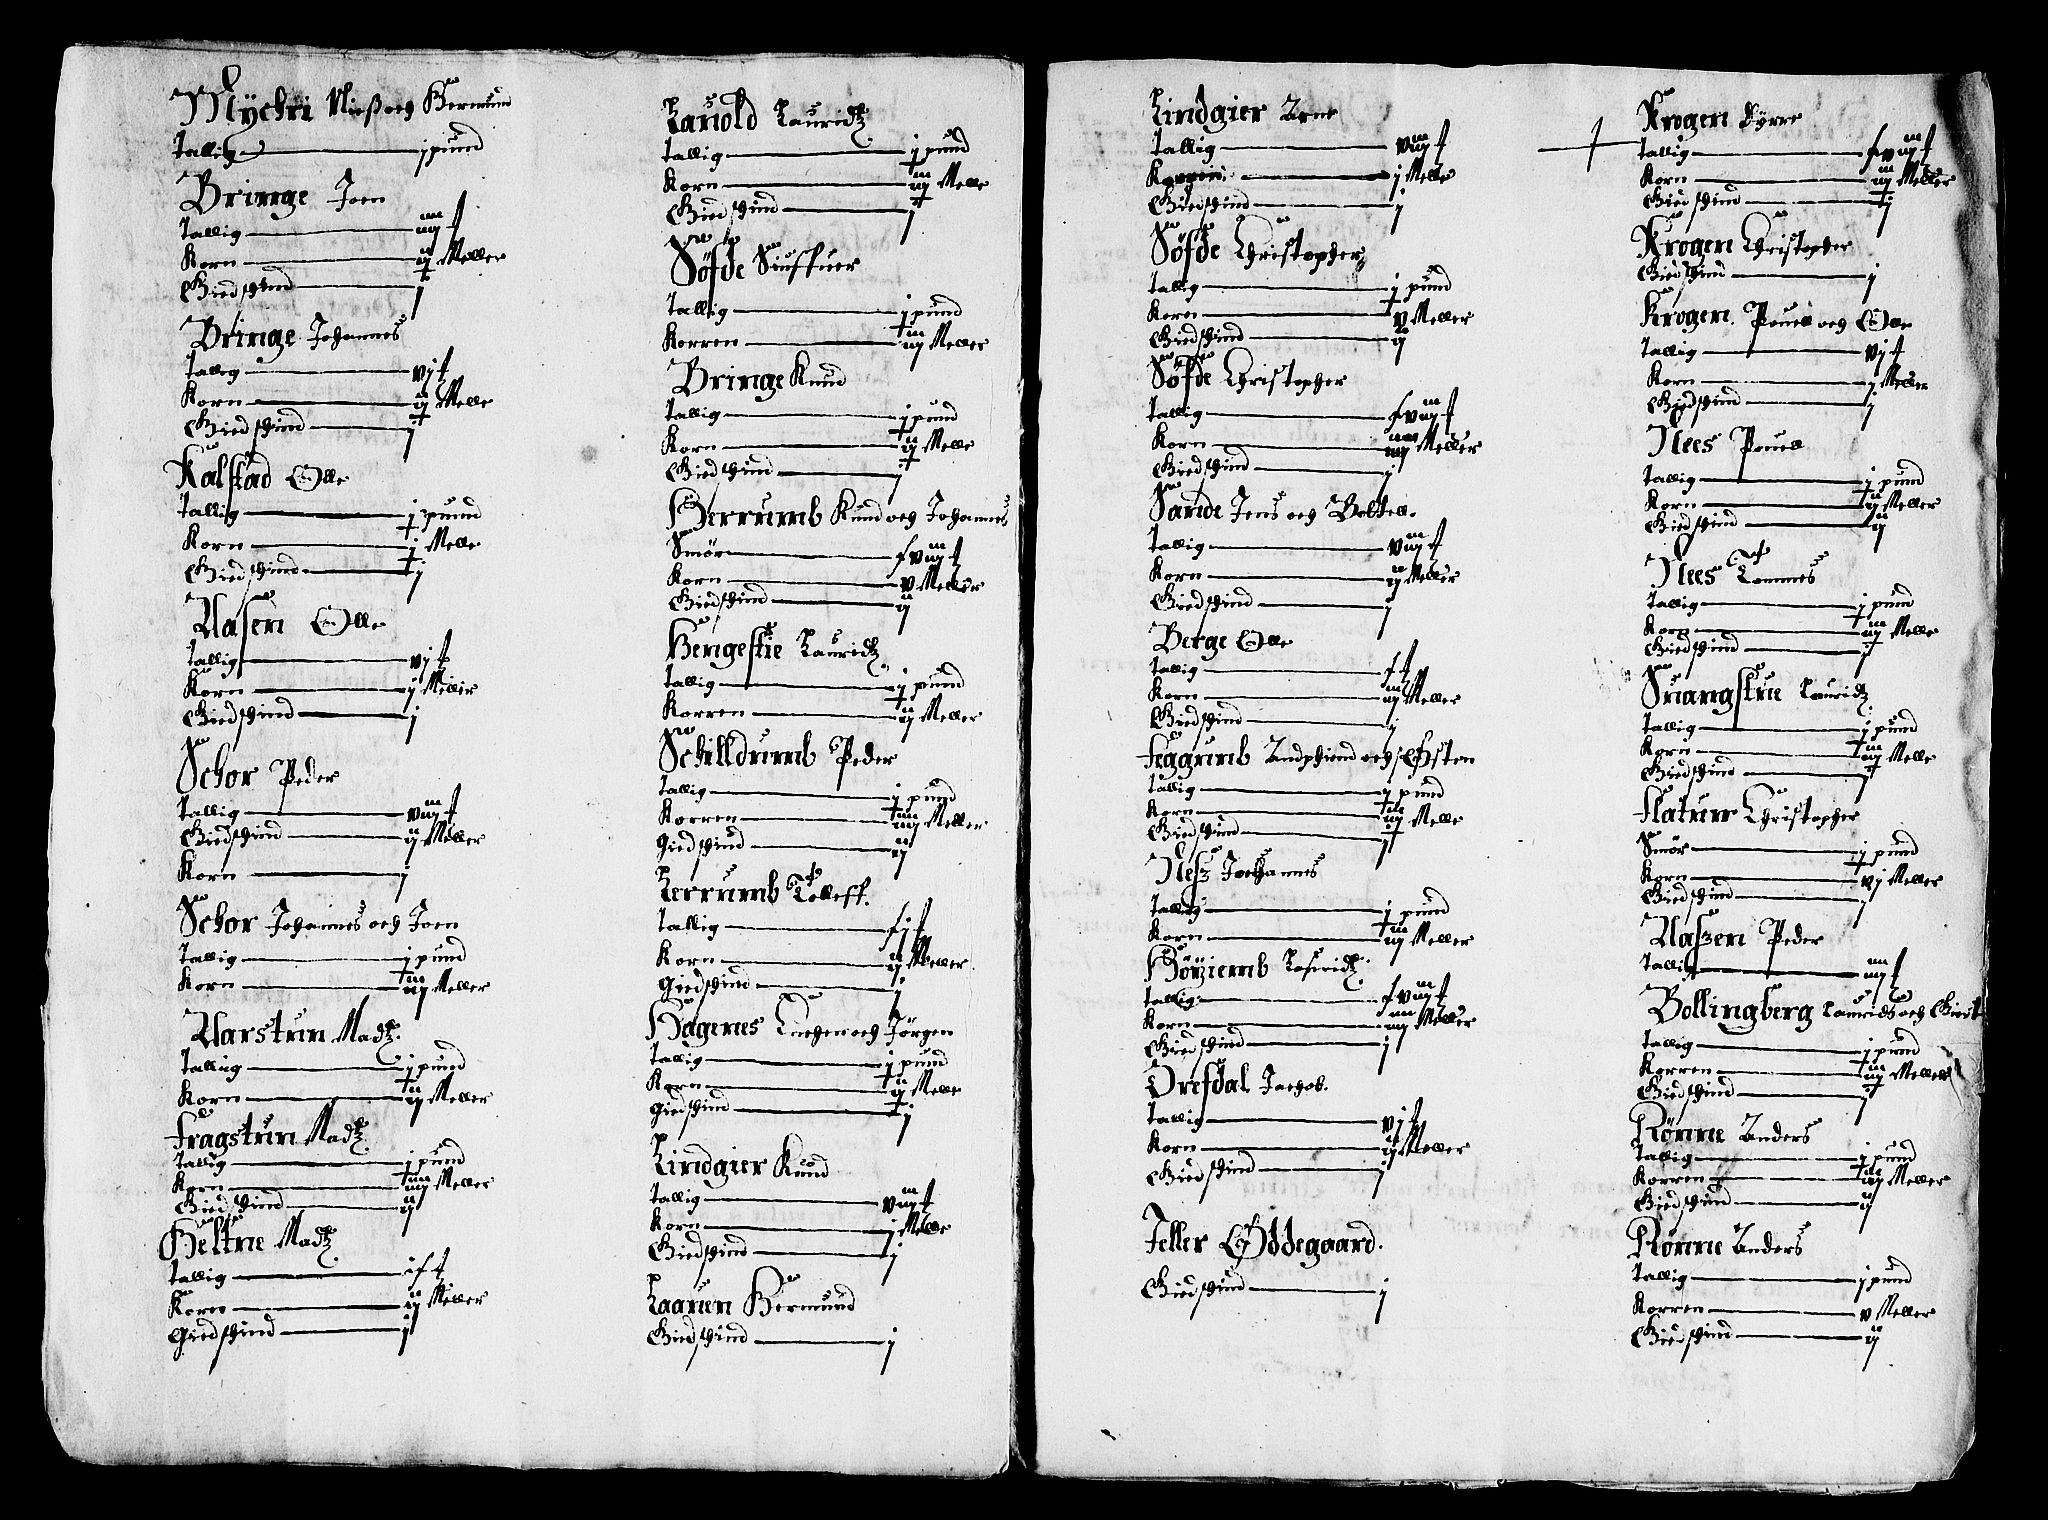 Myckri Nielß och Hermund
Tallig j pund
Bringe Joen
Tallig iiij
Korn ij Meller
Giedschind j
Bringe Johannes
Talleg vj
Korn ij Melle
Giedschind j
Kalstad Olle
Tallig j pund
Korn j Melle
Giedschind j
Aasen Olle
Tallig vj
Korn ij Meller
Giedschind j
Schor Peder
Tallig viij
Giedschind ij Meller
Korn j
Schor Johannes och Joen
Tallig j pund
Korn iij Meller
Aarstun Madtz.
Tallig j pund
Korn ij Meller
Fragstun Madtz.
Tallig j pund
Korn iiij Meller
Giedschind ij
Heltne Madtz.
Tallig
Korn ij Meller
Giedschind j
Lauold Lauridtz.
Tallig j pund
Korn iij Melle
Giedschind j
Söfde Siuffuer
Tallig j pund
Korren iij Meller
Bringe Knud
Tallig j pund
Korn ij Melle
Giedschind j
Herrumb Knud och Johannes
Smör
Korn v Meller
Giedschind ij
Hengestie Lauridtz.
Tallig j pund
Korren ij Meller
Schilldumb Peder
Tallig j pund
Korren iiij Meller
Giedschind ij
Lerrumb Tolleff.
Tallig
Korn ij Meller
Giedschind j
Hagenes Jörgen
Tallig j pund
Korn ij Melle
Giedschind j
Lindgier Knud
Tallig viij
Korn j Melle
Giedschind j
Laauen Hermund
Giedschind j
Lindgier Arne
Tallig viij
Korn j Melle
Giedschind j
Söfde Christopher
Tallig j pund
Korn v Meller
Giedschind ij
Söfde Christopher
Tallig
Korn iiij Meller
Giedschind j
Sande Jens och Botell.
Tallig viij
Korn ij Meller
Giedschind j
Berge Olle
Tallig
Korn iij Meller
Giedschind j
Feggumb Andschiend och Östen
Tallig j pund
Korn iij Melle
Giedschind j
Nesz Joehannes
Tallig j pund
Korn iij Meller
Höyiemb Lasridtz.
Tallig
Korn iiij Meller
Giedschind j
Orefdal Jachob.
Tallig vj
Korn ij Meller
Giedschind j
Jeller Öddegaard.
Giedschind j
Krogen Byrre
Tallig
Korn iij Meller
Giedschind j
Krogen Christopher
Giedschind j
Krogen. Pouel och Olle
Tallig vj
Korn j Meller
Giedschind j
Nees Pouell
Tallig j pund
Korn ij Meller
Giedschind ij
Nees Tommes
Tallig j pund
Korn iij Melle
Giedschind j
Suangstue Lauridtz.
Tallig j pund
Korn iij Melle
Giedschind j
Flatun Christopher
Smör j pund
Korn vj Meller
Giedschind j
Aaszen Peder
Tallig iiij
Bollingberg Laurids och
Tallig j pund
Korren iij Meller
Giedschind j
Rönne Anders
Tallig j pund
Korren iij Meller
Giedschind ij
Rönne Anders
Tallig j pund
Korren v Meller
Giedschind ij